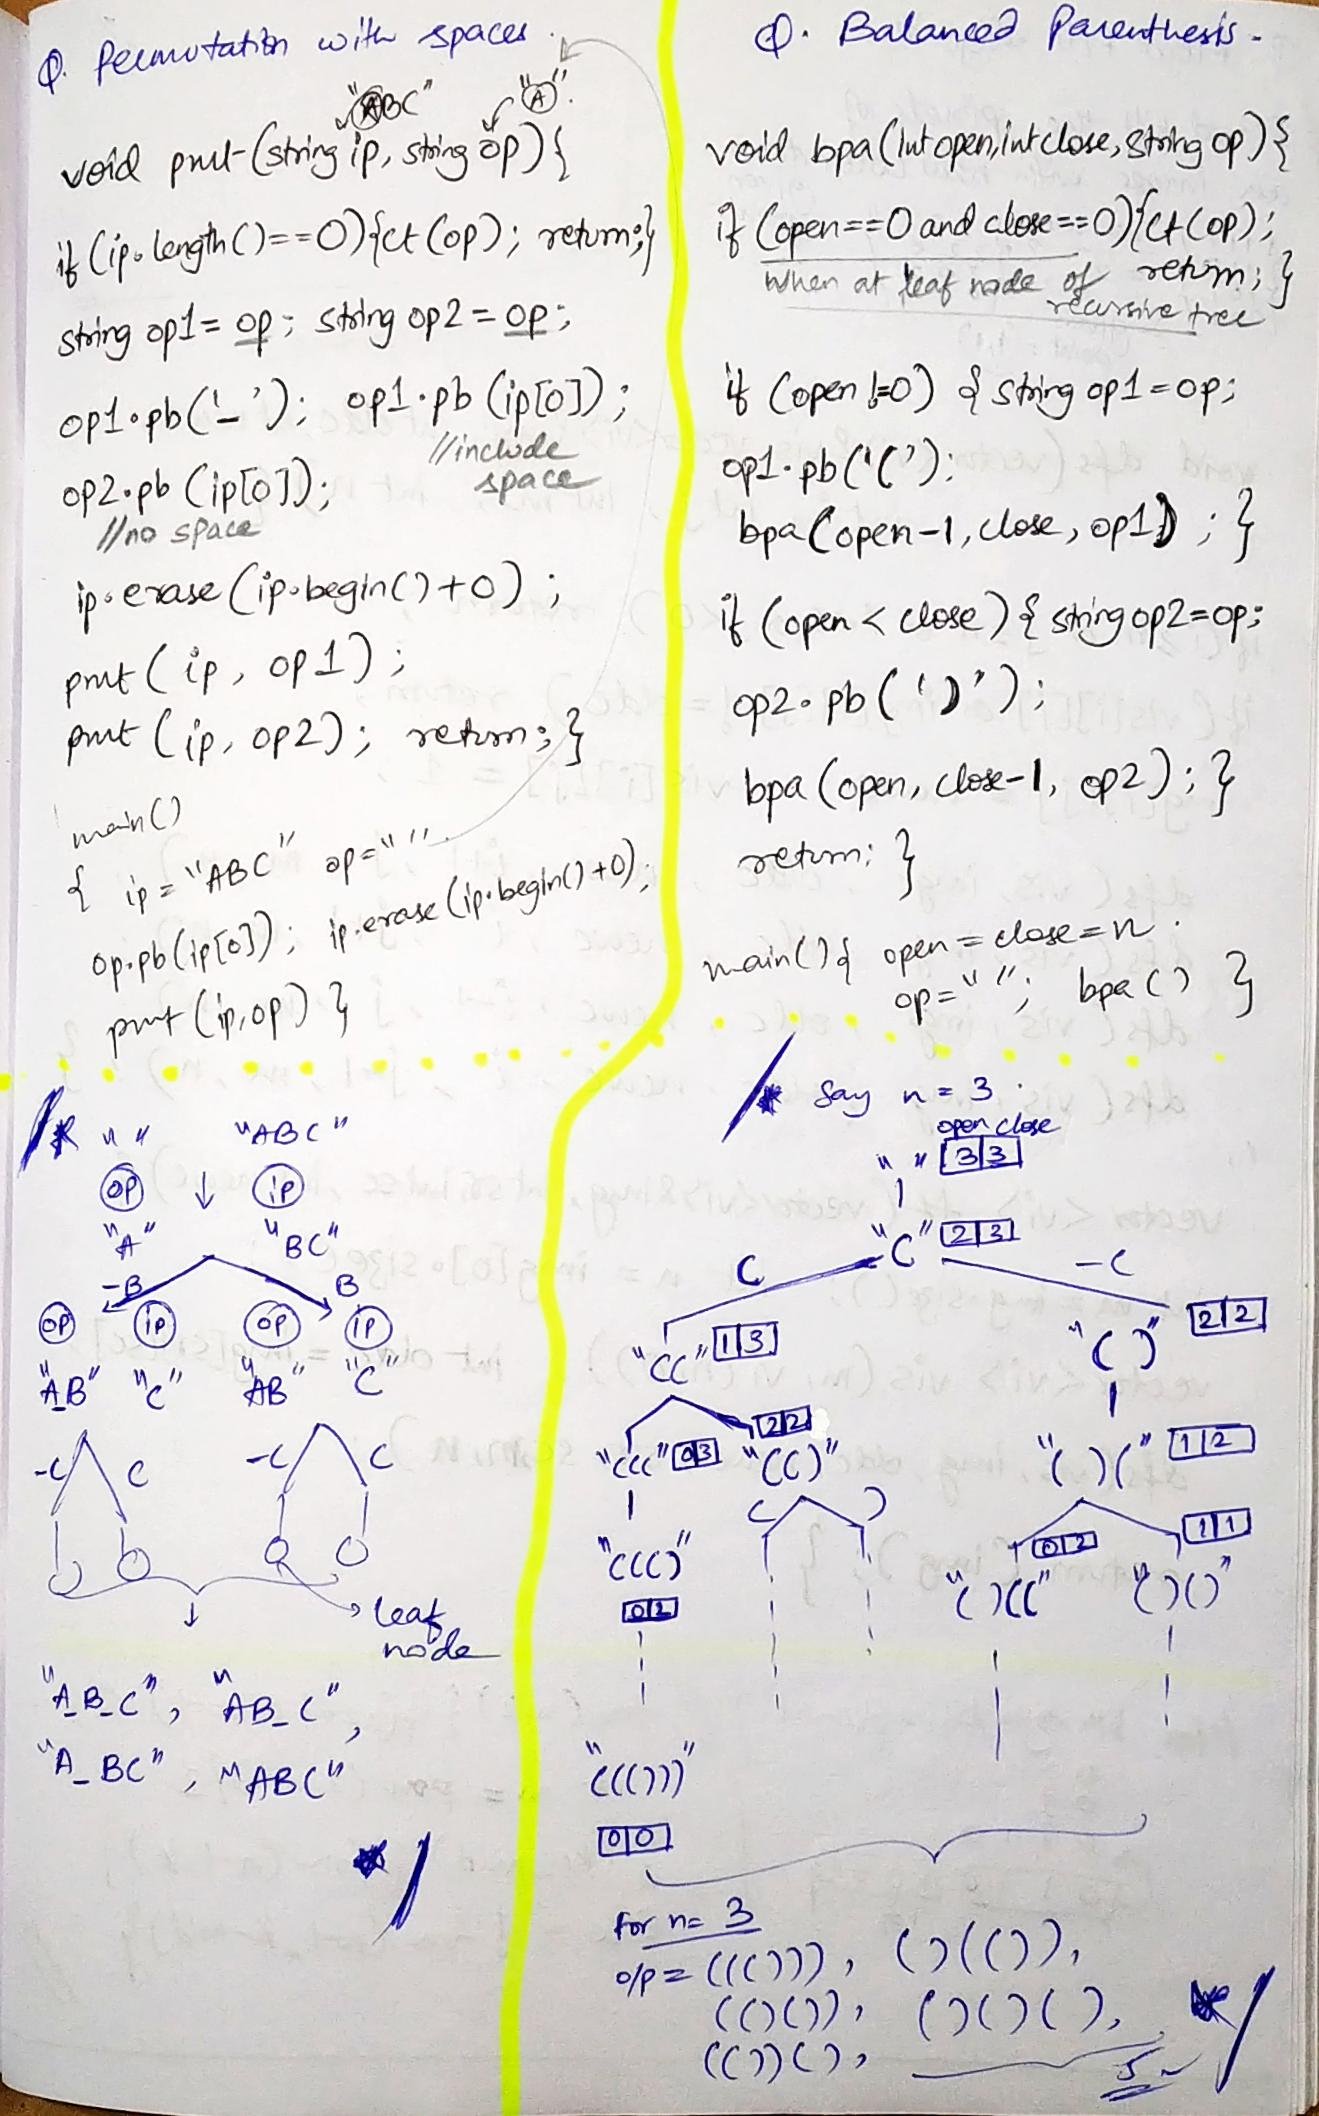 Q. Permutation with spaces.
"ABC" "A".
void pmt(string ip, string op){
if (ip.length()==0){ct(op); return;}
string op1=op; string op2=op;
op1.pb('_'); op1.pb(ip[0]);
//include
space
op2.pb(ip[0]);
//no space
ip.erase(ip.begin()+0);
pmt(ip, op1);
pmt(ip, op2); return;}
main()
{ ip="ABC" op=""
op.pb(ip[0]); ip.erase(ip.begin()+0);
pmt(ip,op) }
/* " " "ABC"
op ip
"A" "BC"
-B B
op ip op ip
"A_B" "C" "AB" "C"
-C C -C C
leaf
node
"A_B_C", "AB_C",
"A_BC", "ABC"
*/
Q. Balanced Parenthesis.
void bpa(int open,int close,string op){
if (open==0 and close==0){ct(op);
return;}
when at leaf node of
recursive tree
if (open!=0) { string op1=op;
op1.pb('(');
bpa(open-1, close, op1);}
if (open < close) { string op2=op;
op2.pb(')');
bpa(open, close-1, op2);}
return; }
main(){ open=close=n.
op=""; bpa() }
/* Say n=3.
open close
" " 3|3
"(" 2|3
( -(
"((" 1|3 "()" 2|2
"(((" 0|3 "(()" 2|2 "()(" 1|2
( )
"((()" 0|2 "()((" 0|2 "()()" 1|1
"((()))"
0|0
for n=3
o/p = ((())), ()(()),
(()()), ()()(),
(())(), 5
*/